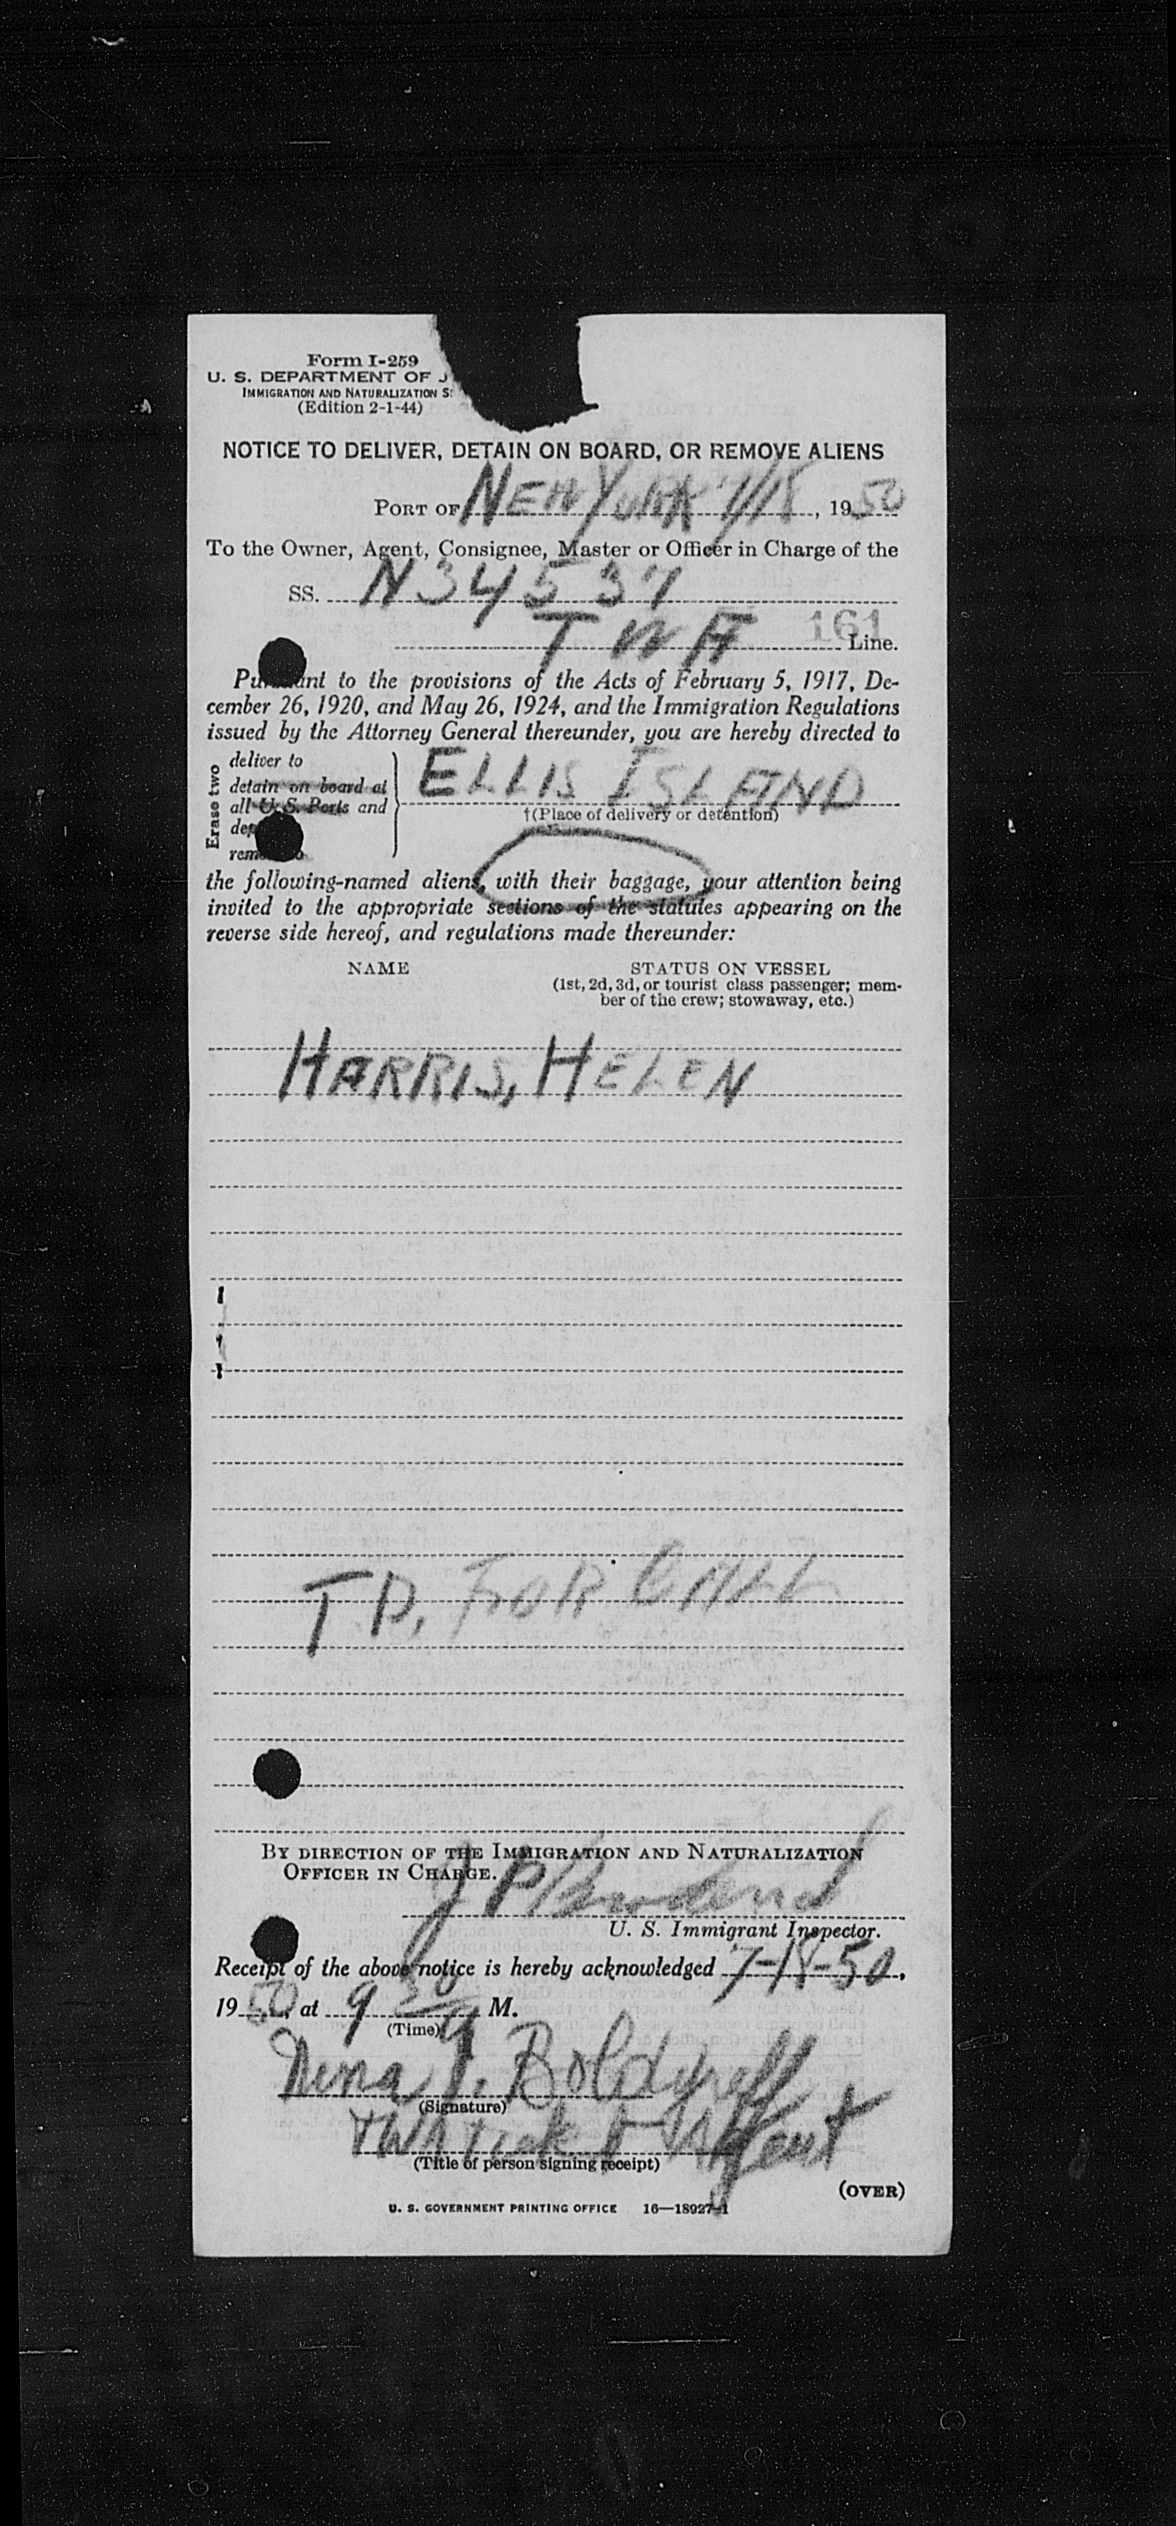 Form I-259
U. S. DEPARTMENT OF J
IMMIGRATION AND NATURALIZATION S
(Edition 2-1-44)
NOTICE TO DELIVER, DETAIN ON BOARD, OR REMOVE ALIENS
PORT OF NEW YORK 7/18, 1950
To the Owner, Agent, Consignee, Master or Officer in Charge of the
SS. N34537
TWA 161 Line.
Pursuant to the provisions of the Acts of February 5, 1917, De-
cember 26, 1920, and May 26, 1924, and the Immigration Regulations
issued by the Attorney General thereunder, you are hereby directed to
Erase two
deliver to
detain on board at
all U. S. Ports and
ELLIS ISLAND
†(Place of delivery or detention)
the following-named aliens, with their baggage, your attention being
invited to the appropriate sections of the statutes appearing on the
reverse side hereof, and regulations made thereunder:
NAME STATUS ON VESSEL
(1st, 2d, 3d, or tourist class passenger; mem-
ber of the crew; stowaway, etc.)
HARRIS, HELEN
T.D. FOR CALL
BY DIRECTION OF THE IMMIGRATION AND NATURALIZATION
OFFICER IN CHARGE.
J P
U. S. Immigrant Inspector.
Receipt of the above notice is hereby acknowledged 7-18-50,
1950, at 9 30 M.
(Time)
Nena J.
(Signature)
TWA Ticket Agent
(Title of person signing receipt)
(OVER)
U. S. GOVERNMENT PRINTING OFFICE 16—18927-1